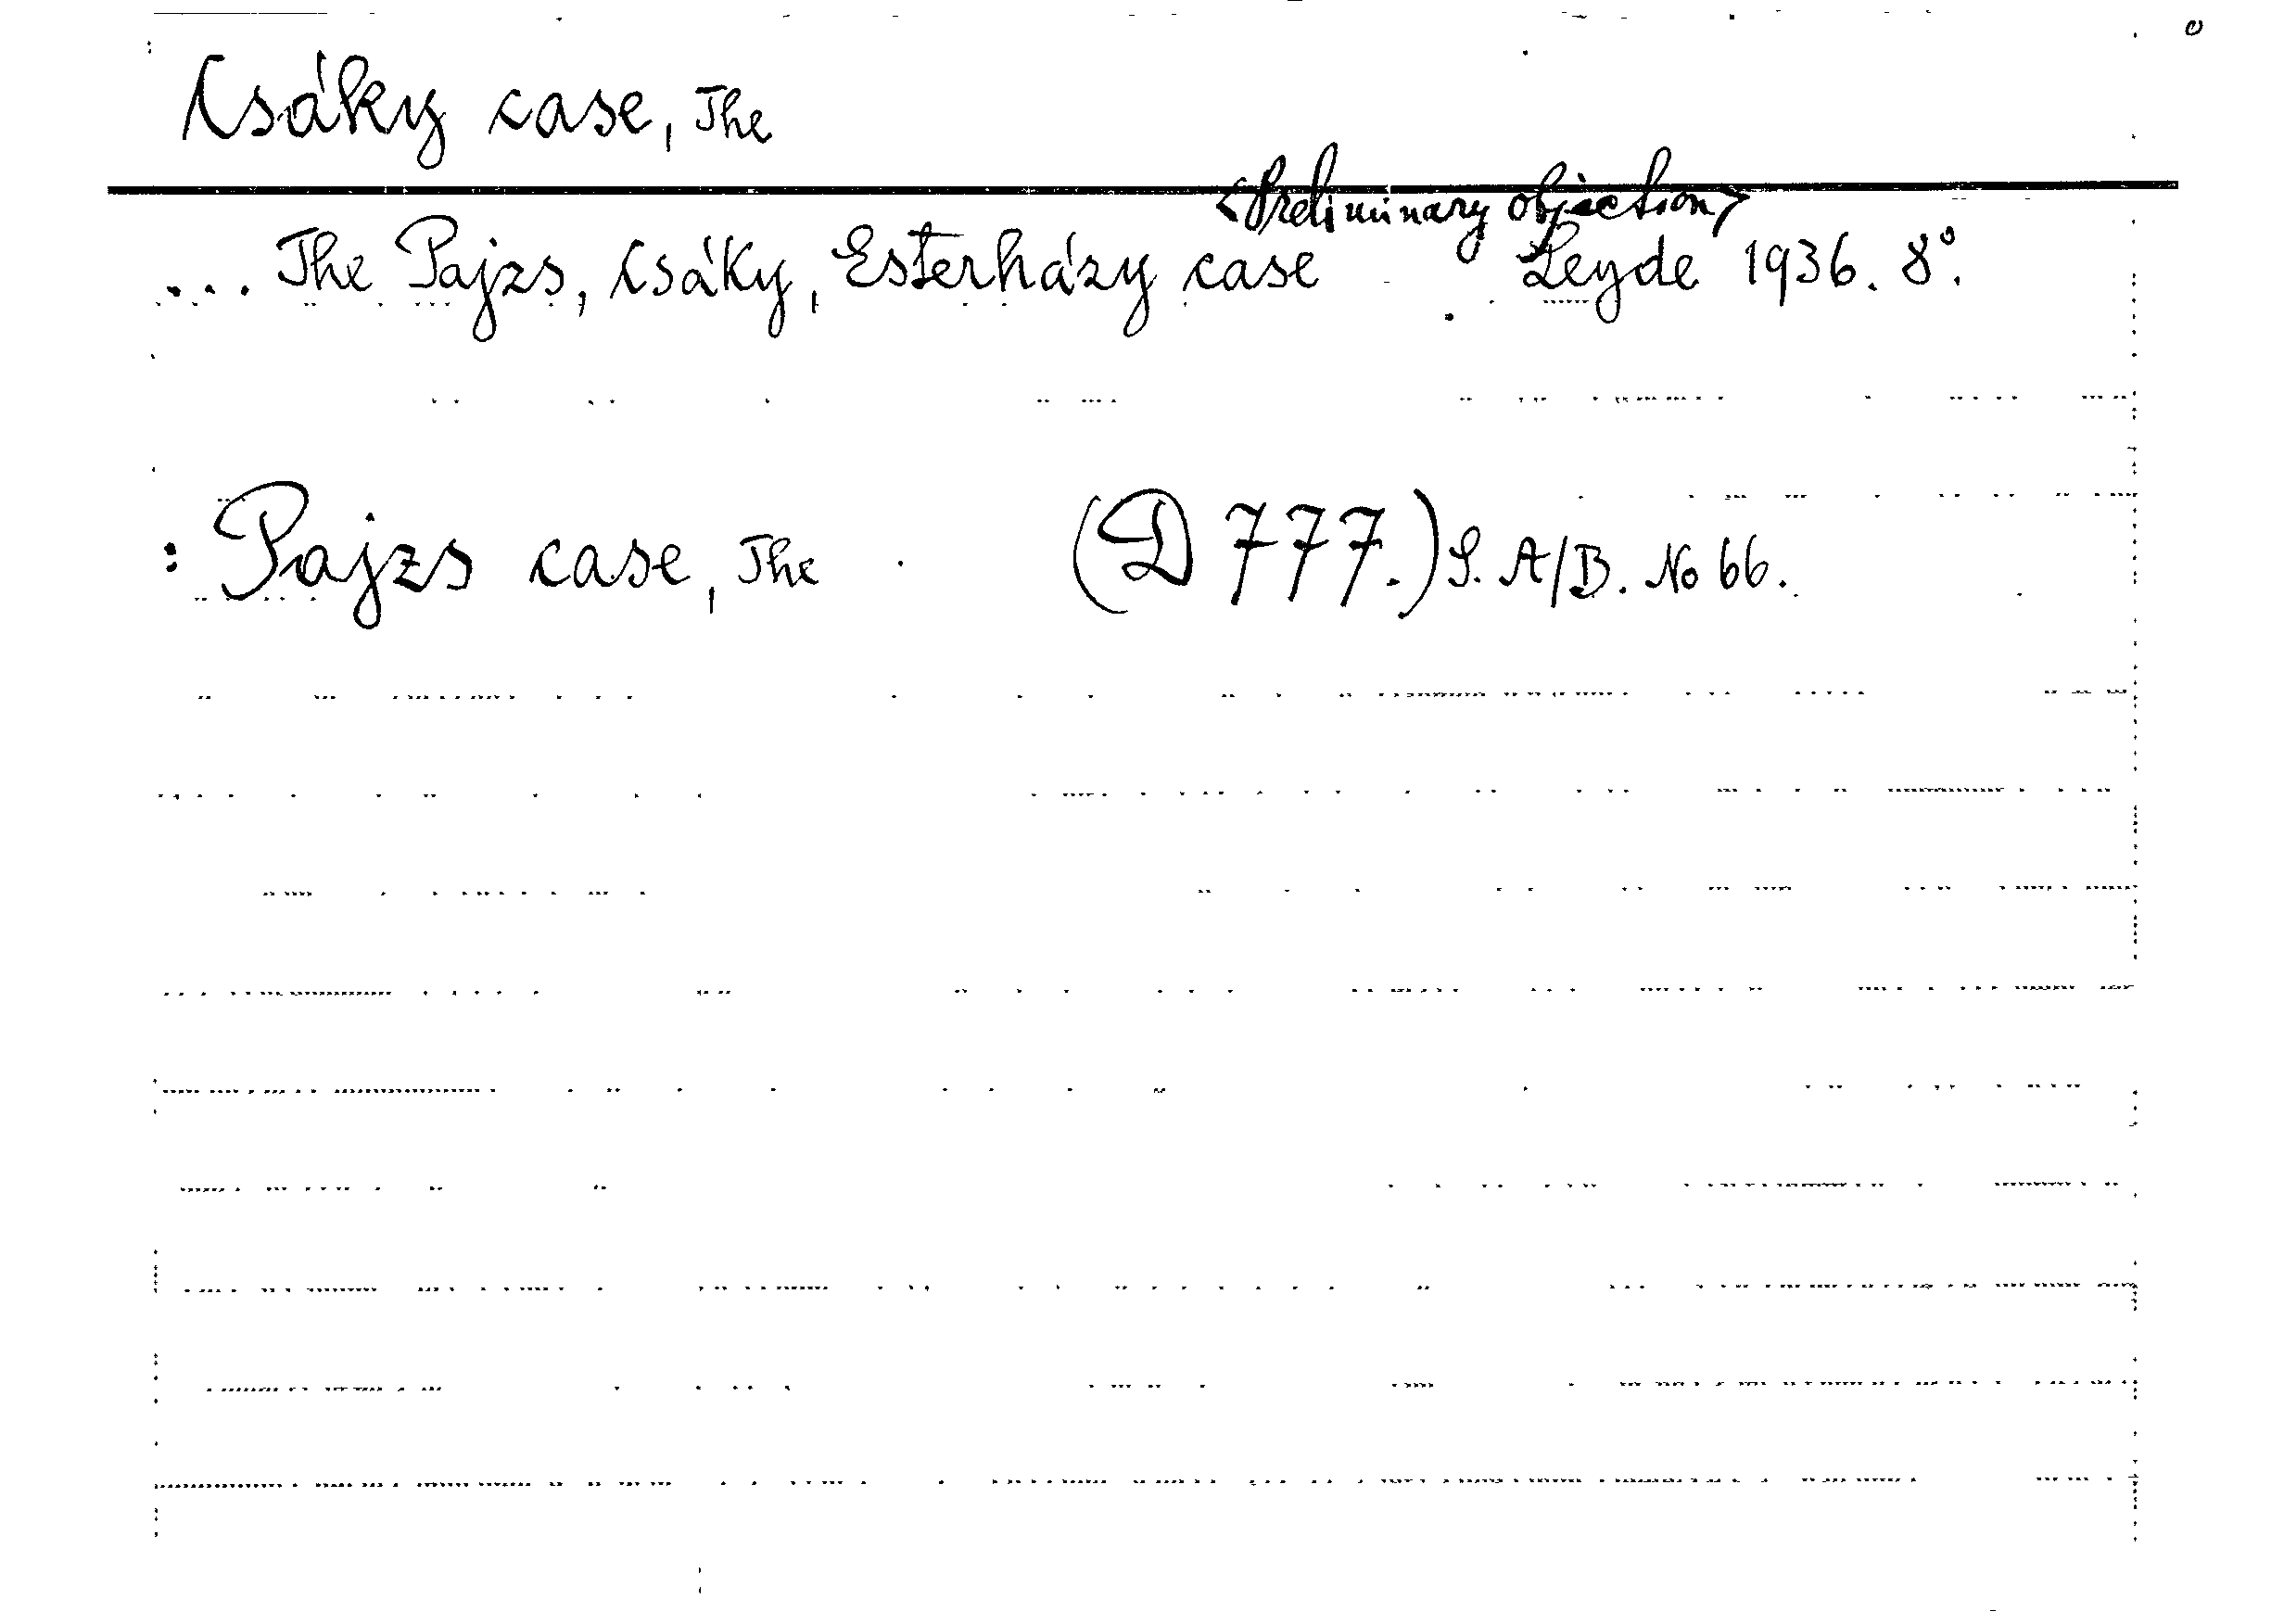 Csáky case, The
<Preliminary objection>
... The Pajzs, Csáky, Esterházy case . Leyde 1936. 8°.
: Pajzs case, The (D 777.) S. A/B. No 66.